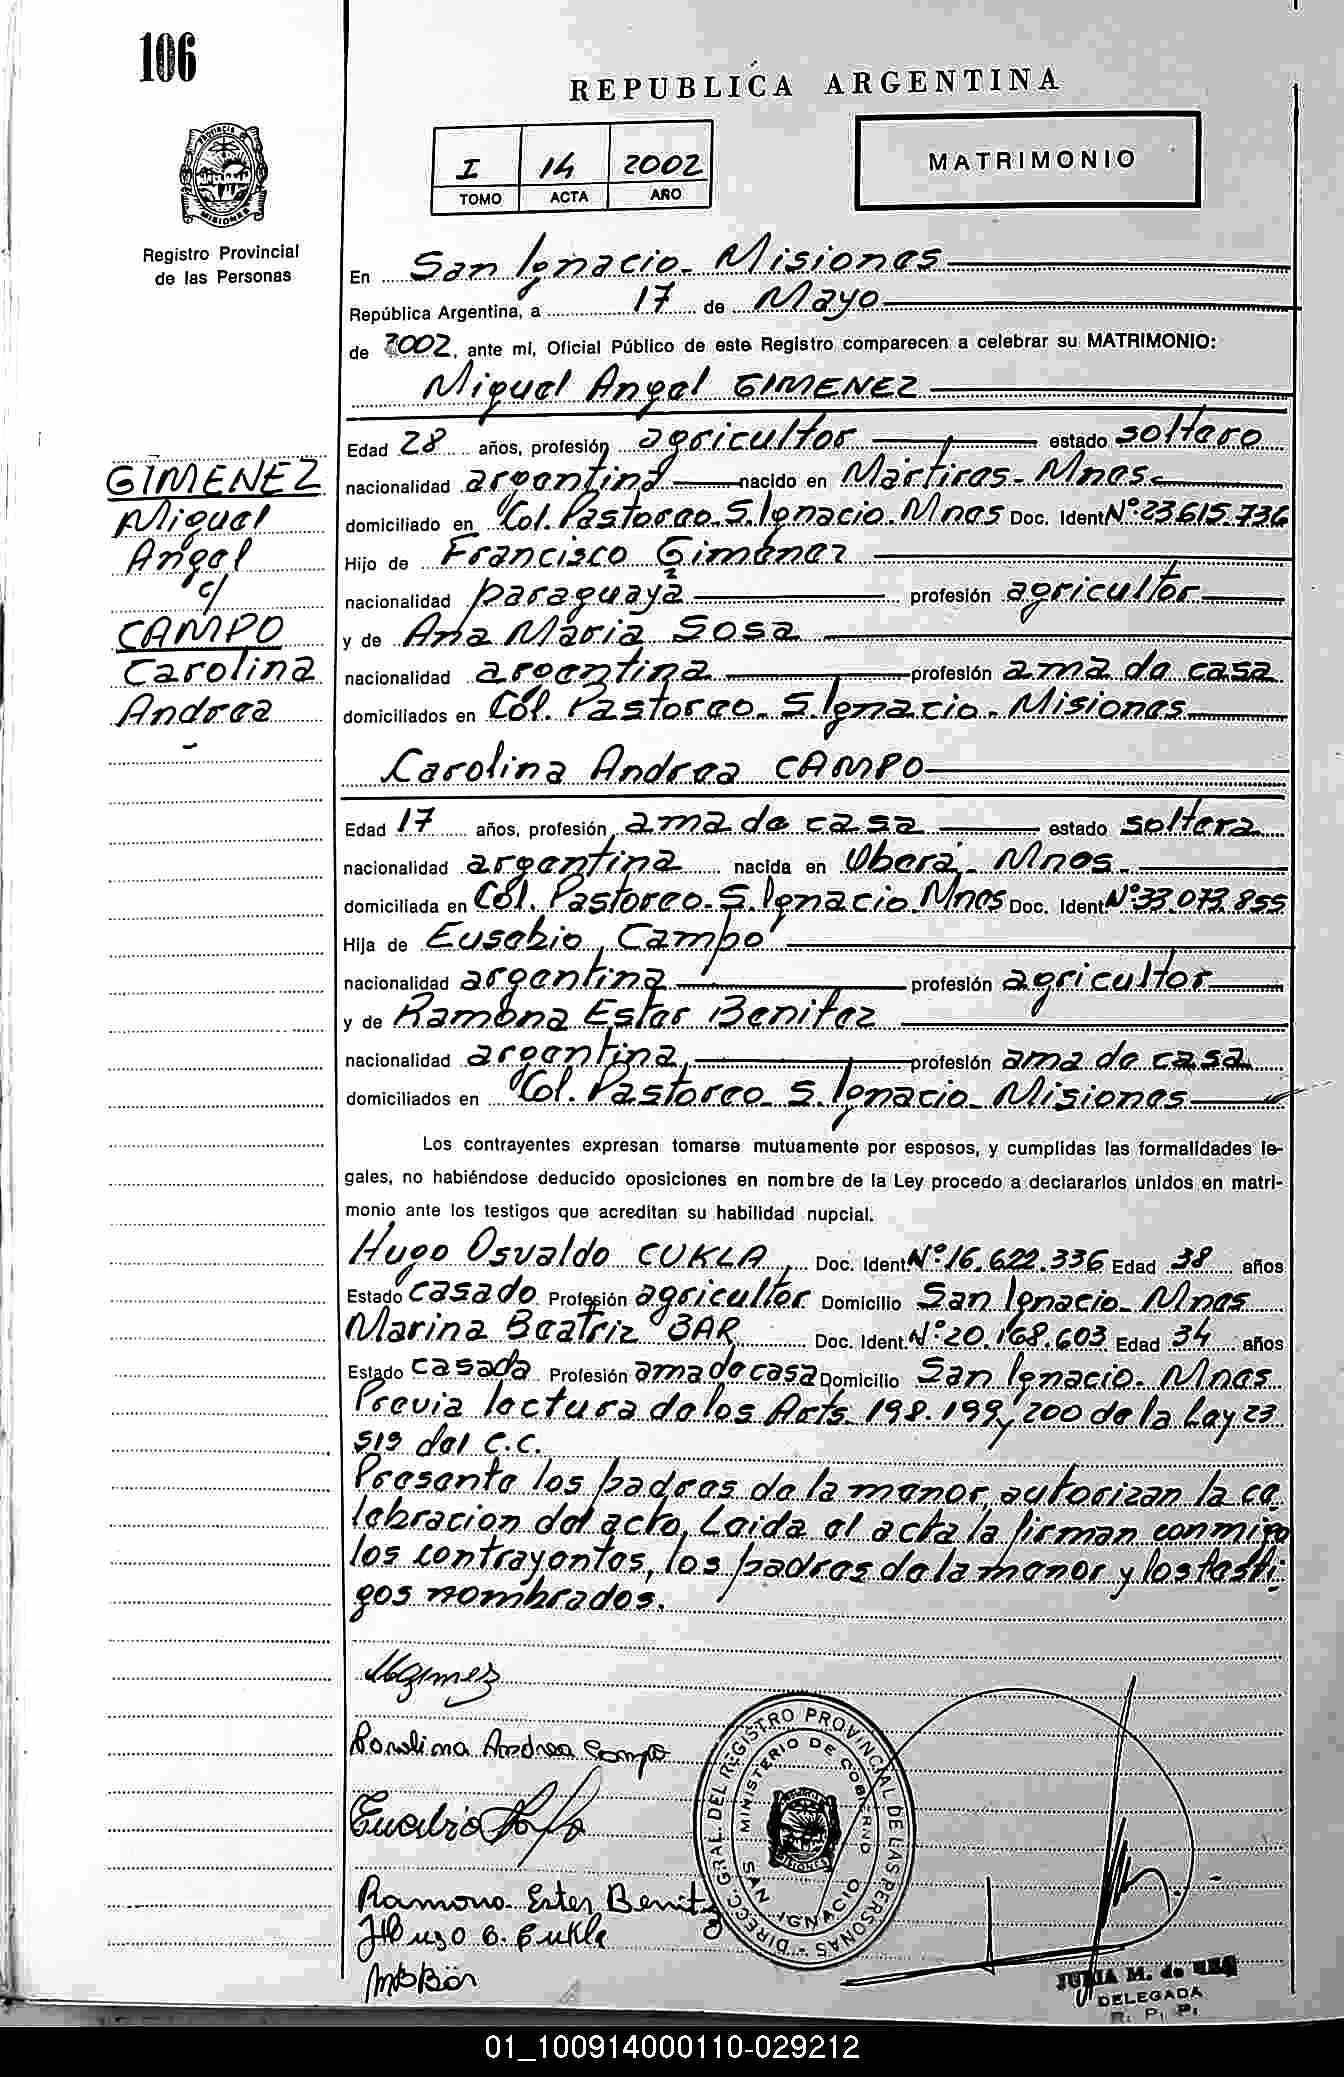 106
REPUBLICA ARGENTINA
I 14 2002
TOMO ACTA AÑO
MATRIMONIO
PROVINCIA
MISIONES
Registro Provincial
de las Personas
En San Ignacio - Misiones
República Argentina, a 17 de Mayo
de 2002, ante mí, Oficial Público de este Registro comparecen a celebrar su MATRIMONIO:
Miguel Angel GIMENEZ
Edad 28 años, profesión agricultor estado soltero
nacionalidad argentina nacido en Mártires - Mnes.
domiciliado en Col. Pastoreo - S. Ignacio. Mnes Doc. Ident Nº 23.615.736
Hijo de Francisco Gimenez
nacionalidad paraguaya profesión agricultor
y de Ana Maria Sosa
nacionalidad argentina profesión ama de casa
domiciliados en Col. Pastoreo - S. Ignacio - Misiones
GIMENEZ
Miguel
Angel
c/
CAMPO
Carolina
Andrea
Carolina Andrea CAMPO
Edad 17 años, profesión ama de casa estado soltera
nacionalidad argentina nacida en Oberá - Mnes.
domiciliada en Col. Pastoreo - S. Ignacio. Mnes Doc. Ident. Nº 33.073.855
Hija de Eusebio Campo
nacionalidad argentina profesión agricultor
y de Ramona Ester Benitez
nacionalidad argentina profesión ama de casa
domiciliados en Col. Pastoreo - S. Ignacio - Misiones
Los contrayentes expresan tomarse mutuamente por esposos, y cumplidas las formalidades le-
gales, no habiéndose deducido oposiciones en nombre de la Ley procedo a declararlos unidos en matri-
monio ante los testigos que acreditan su habilidad nupcial.
Hugo Osvaldo CUKLA, Doc. Ident Nº 16.622.336 Edad 38 años
Estado casado Profesión agricultor Domicilio San Ignacio - Mnes
Marina Beatriz BAR Doc. Ident. Nº 20.168.603 Edad 34 años
Estado casada Profesión ama de casa Domicilio San Ignacio - Mnes
Previa lectura de los Arts. 198. 199 y 200 de la Ley 23
515 del C.C.
Presente los padres de la menor, autorizan la ce
lebracion del acto, Leida el acta la firman conmigo
los contrayentes, los padres de la menor y los testi-
gos nombrados.
Carolina Andrea Campo
Ramona Ester Benitez
Hugo O. Cukla
DIRECC. GRAL. DEL REGISTRO PROVINCIAL DE LAS PERSONAS
MINISTERIO DE GOBIERNO
SAN IGNACIO
JULIA M. de
DELEGADA
R. P. P.
01_100914000110-029212